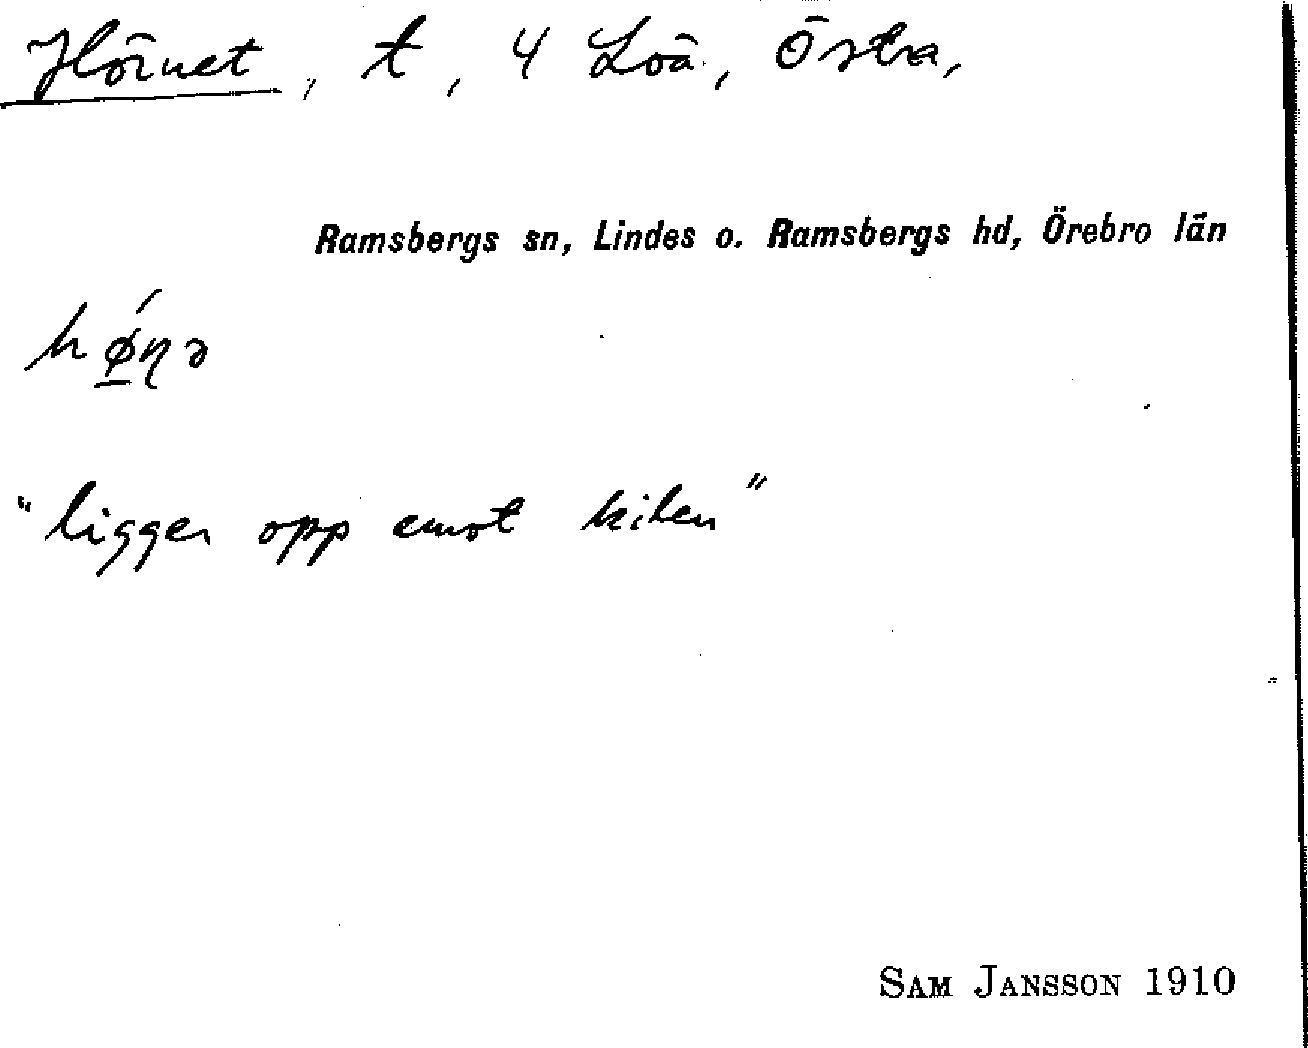 Hörnet, t, 4 Loa, Östra,
Ramsbergs sn, Lindes o. Ramsbergs hd, Örebro län
hǿ̲ɳə
"ligger opp emot kilen"
SAM JANSSON 1910